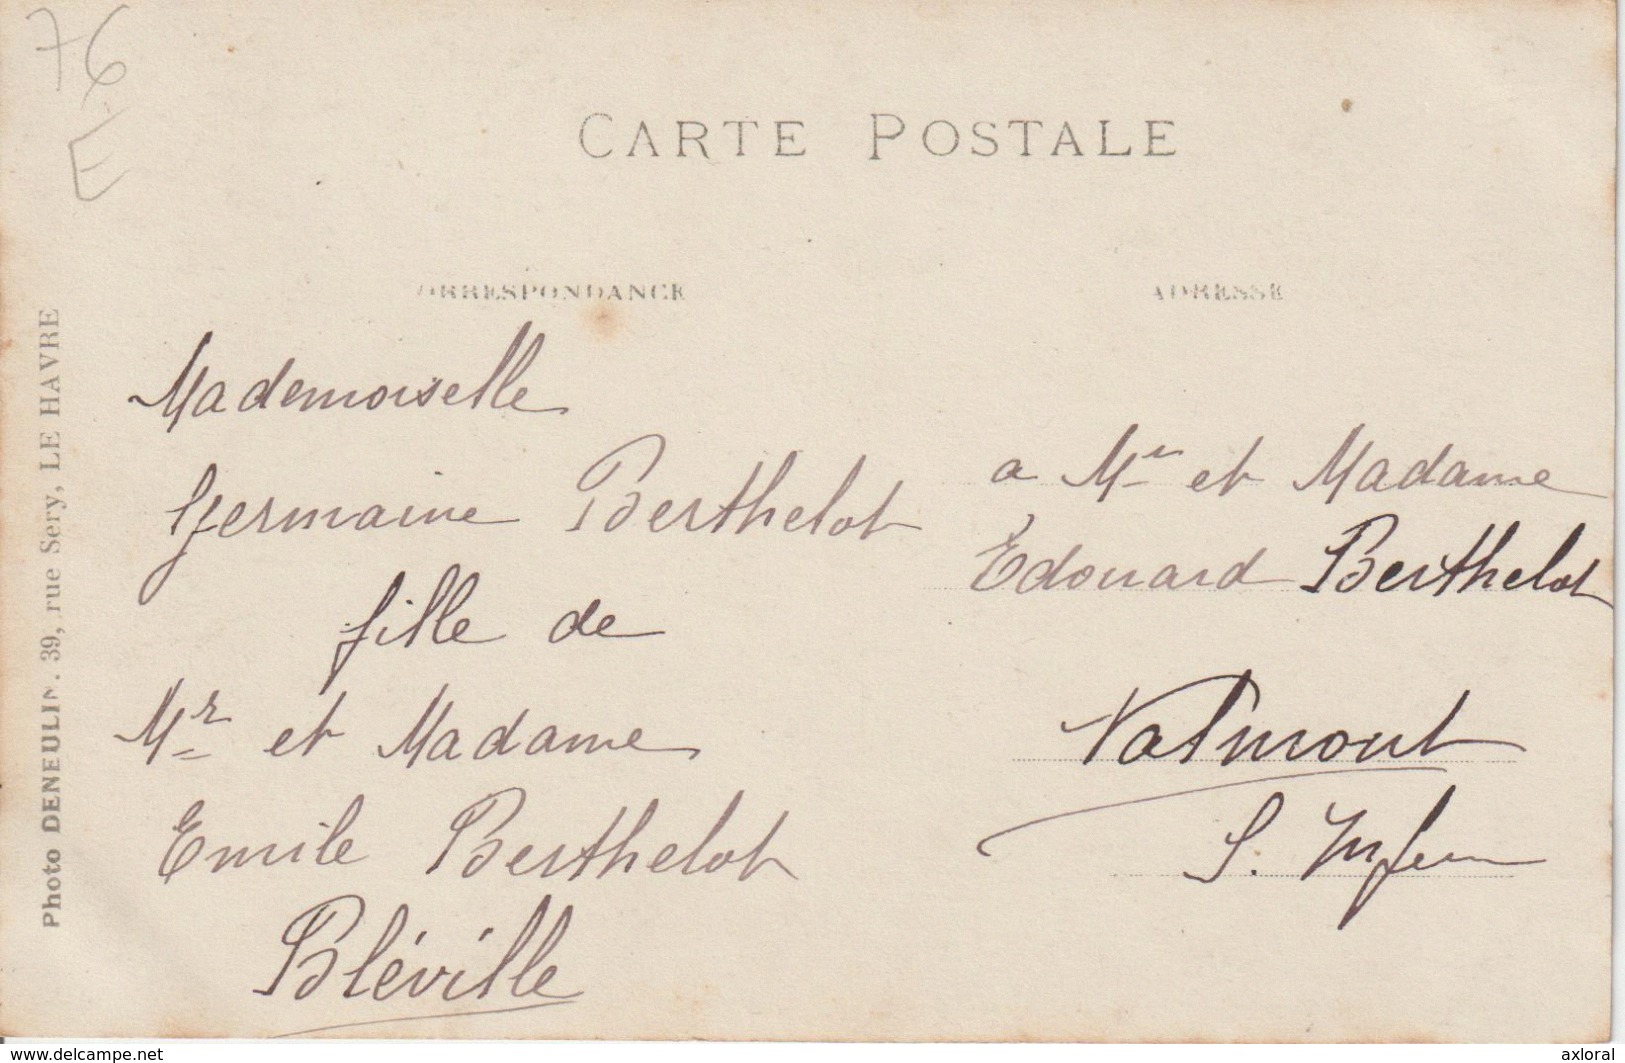 76
E
CARTE POSTALE
ORRESPONDANCE
ADRESSE
Mademoiselle
Germaine Berthelot
fille de
Mr et Madame
Emile Berthelot
Bléville
a Mr et Madame
Édouard Berthelot
Valmont
S. Infer
Photo DENEULIN. 39, rue Sery, LE HAVRE
www.delcampe.net
axloral